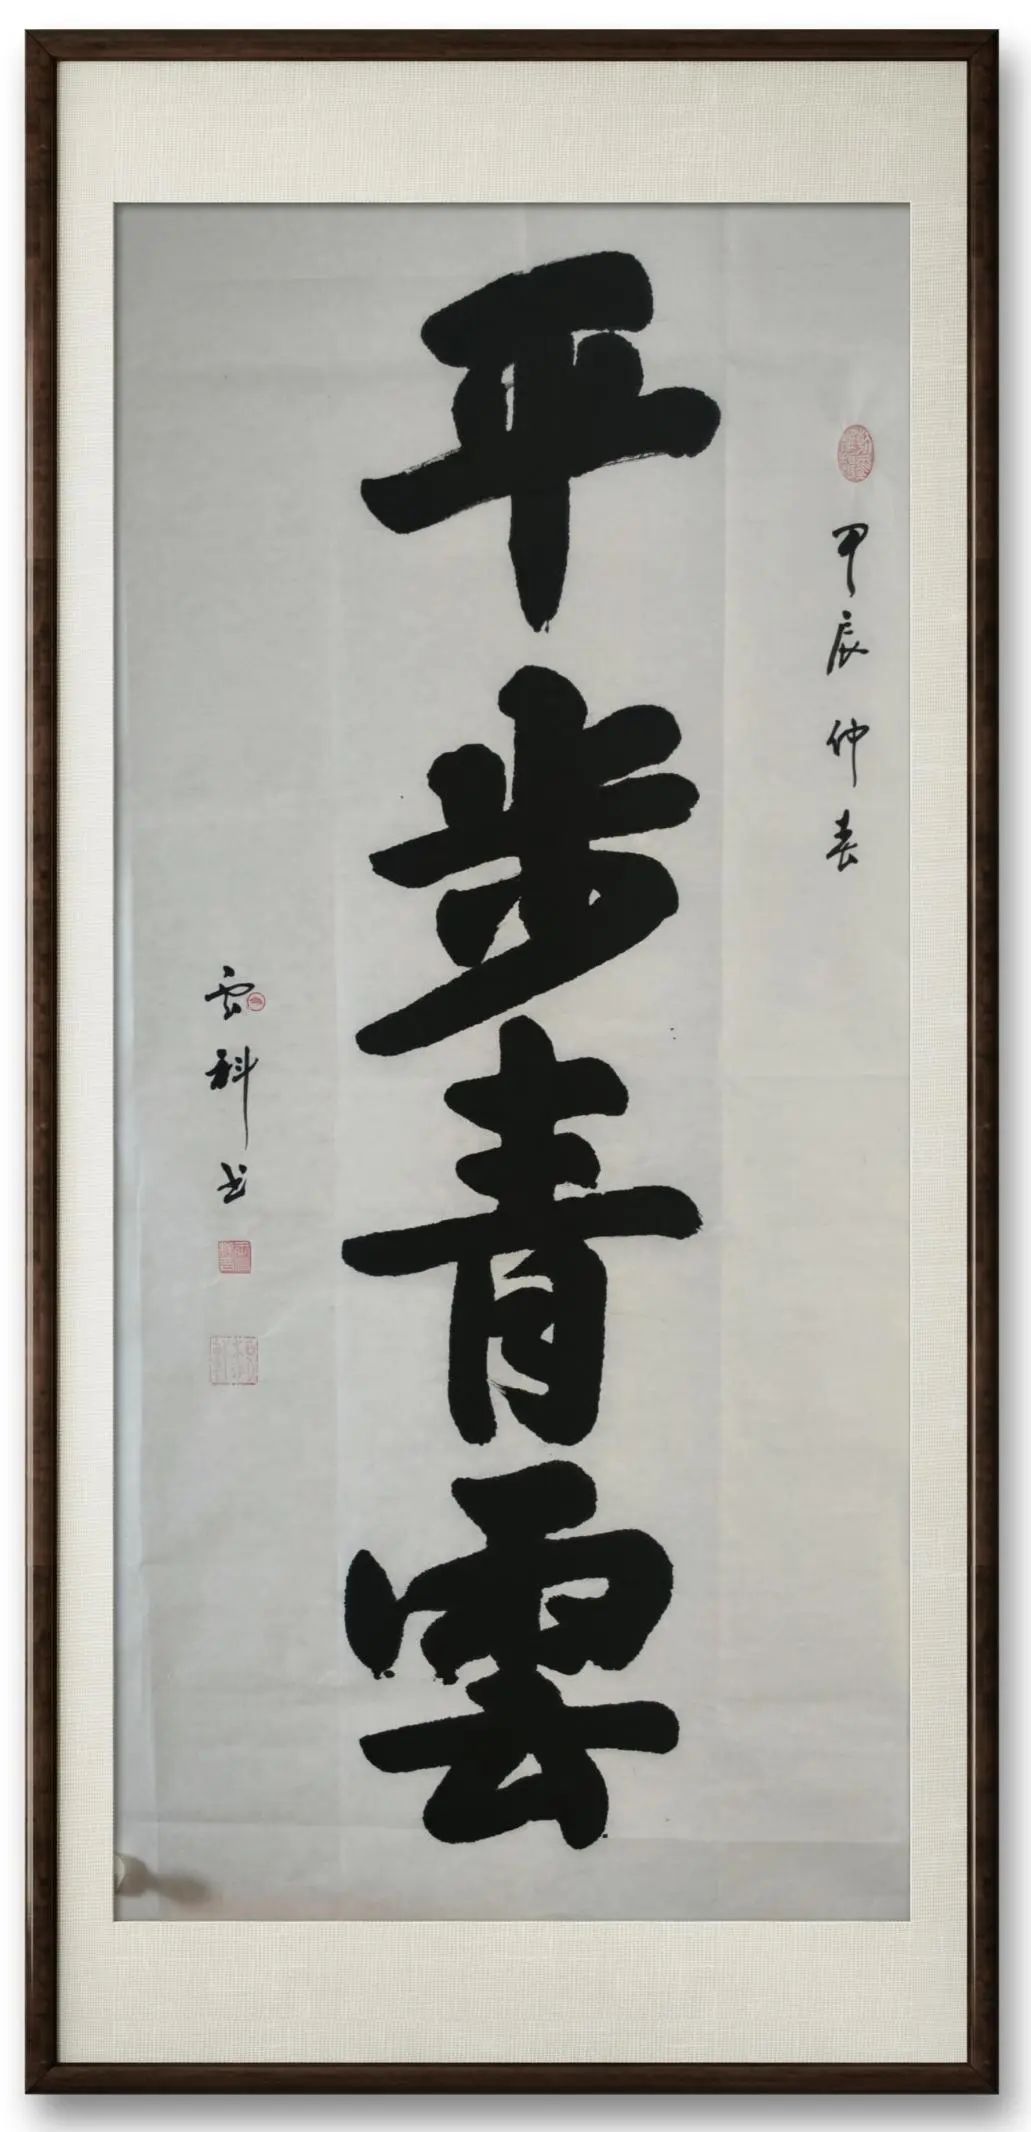 甲辰仲春
平步青雲
雲科书